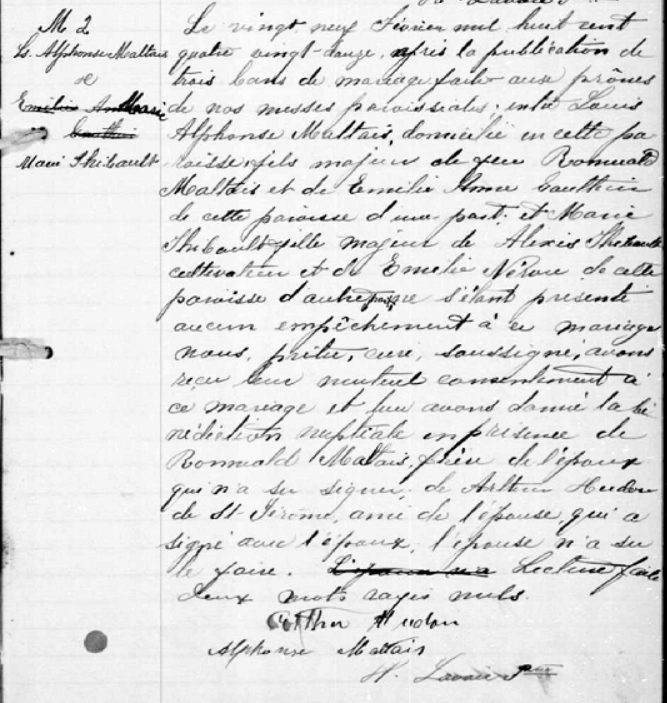 M 2
Ls. Alphonse Maltais
&
Emilie Anne Marie
Gauthier
Marie Thibault
Le vingt neuf Février mil huit cent
quatre vingt-douze, après la publication de
trois bans de mariage faite aux prônes
de nos messes paroissiales, entre Louis
Alphonse Maltais, domicilié en cette pa
roisse, fils majeur de feu Romuald
Maltais et de Emilie Anne Gauthier
de cette paroisse d'une part; et Marie
Thibault fille majeur de Alexis Thibault
cultivateur et de Emelie Néron de cette
paroisse d'autre part, ne s'étant présenté
aucun empêchement à ce mariage
nous, prêtre, curé, soussigné, avons
reçu leur mutuel consentement à
ce mariage et leur avons donné la bé
nédiction nuptiale en présence de
Romuald Maltais, frère de l'époux
qui n'a su signer, de Arthur Hudon
de St Jérôme, ami de l'épouse, qui a
signé avec l'époux, l'épouse n'a su
le faire. L'époux n'a Lecture faite
deux mots rayés nuls.
Arthur Hudon
Alphonse Maltais
H. Lavoie Ptre